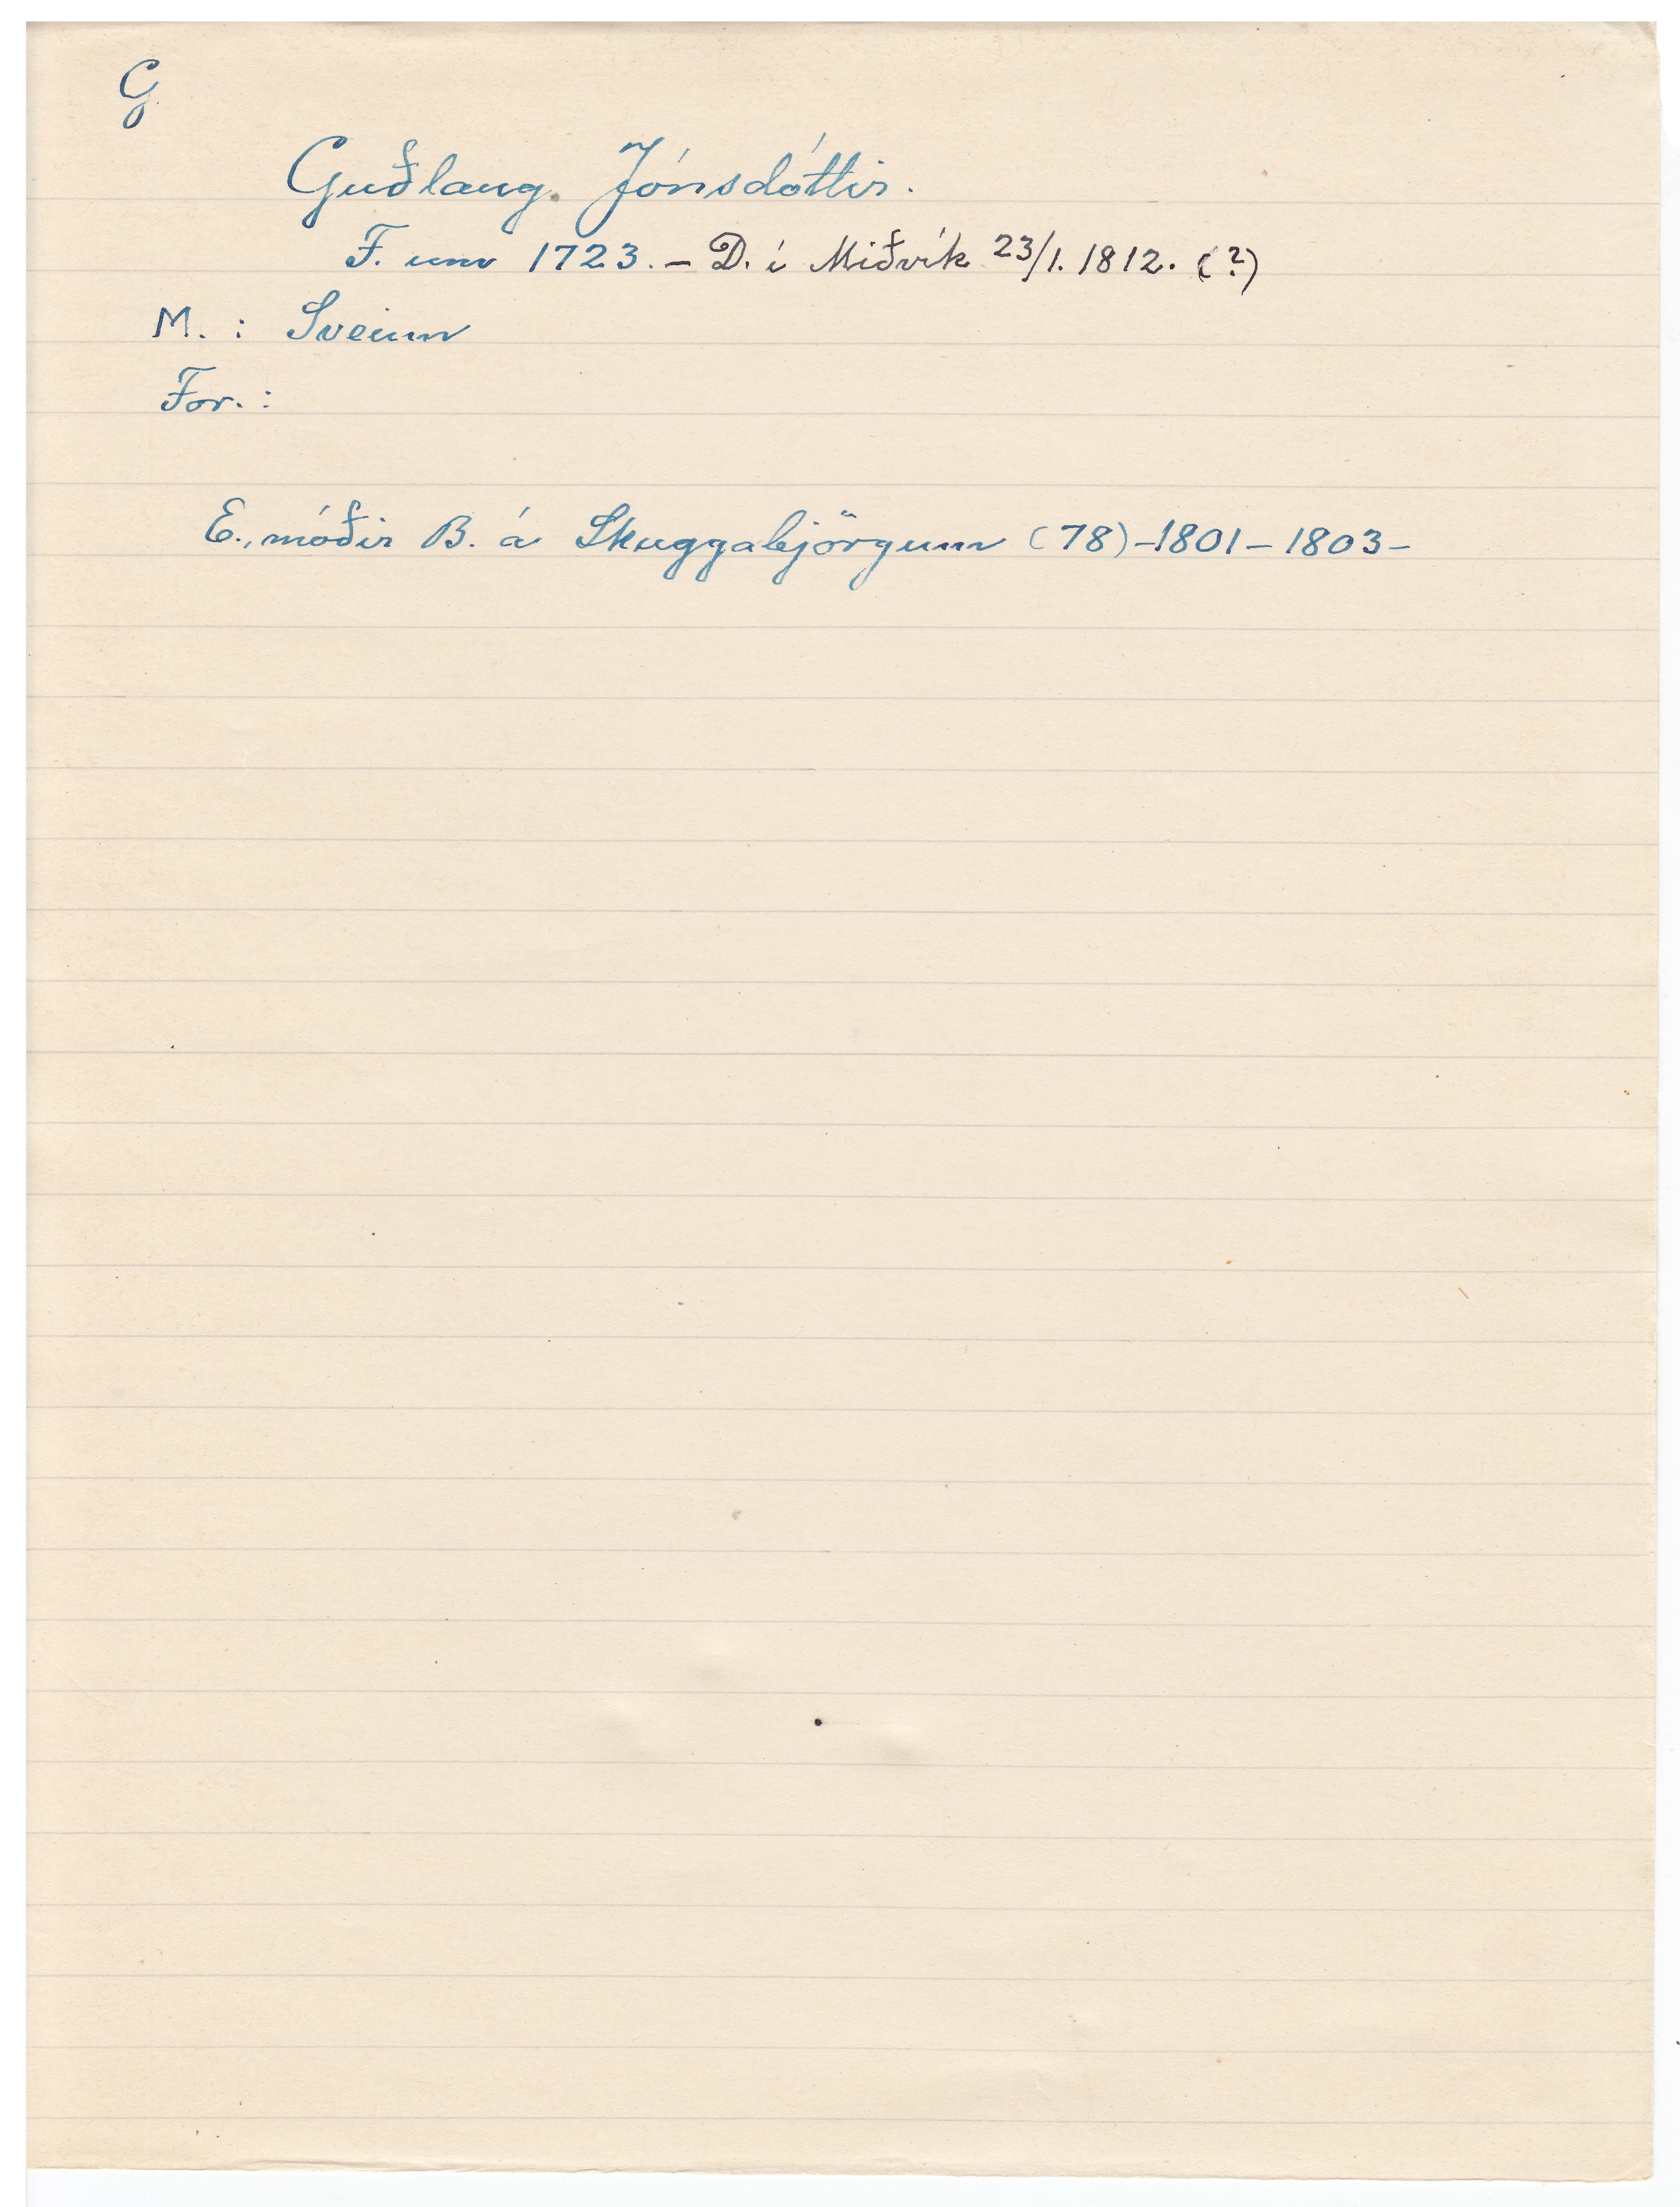 G
Guðlaug Jónsdóttir.
F. um 1723. – D. í Miðvík 23/1. 1812. (?)
M. : Sveinn
For. :
E., móðir B. á Skuggabjörgum (78) – 1801 – 1803 –